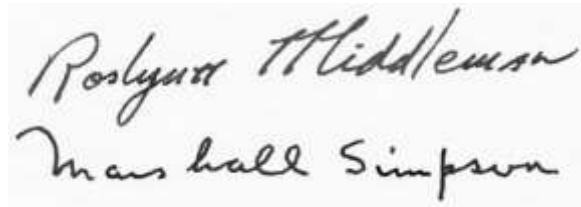 Roslynn Middleman
Marshall Simpson